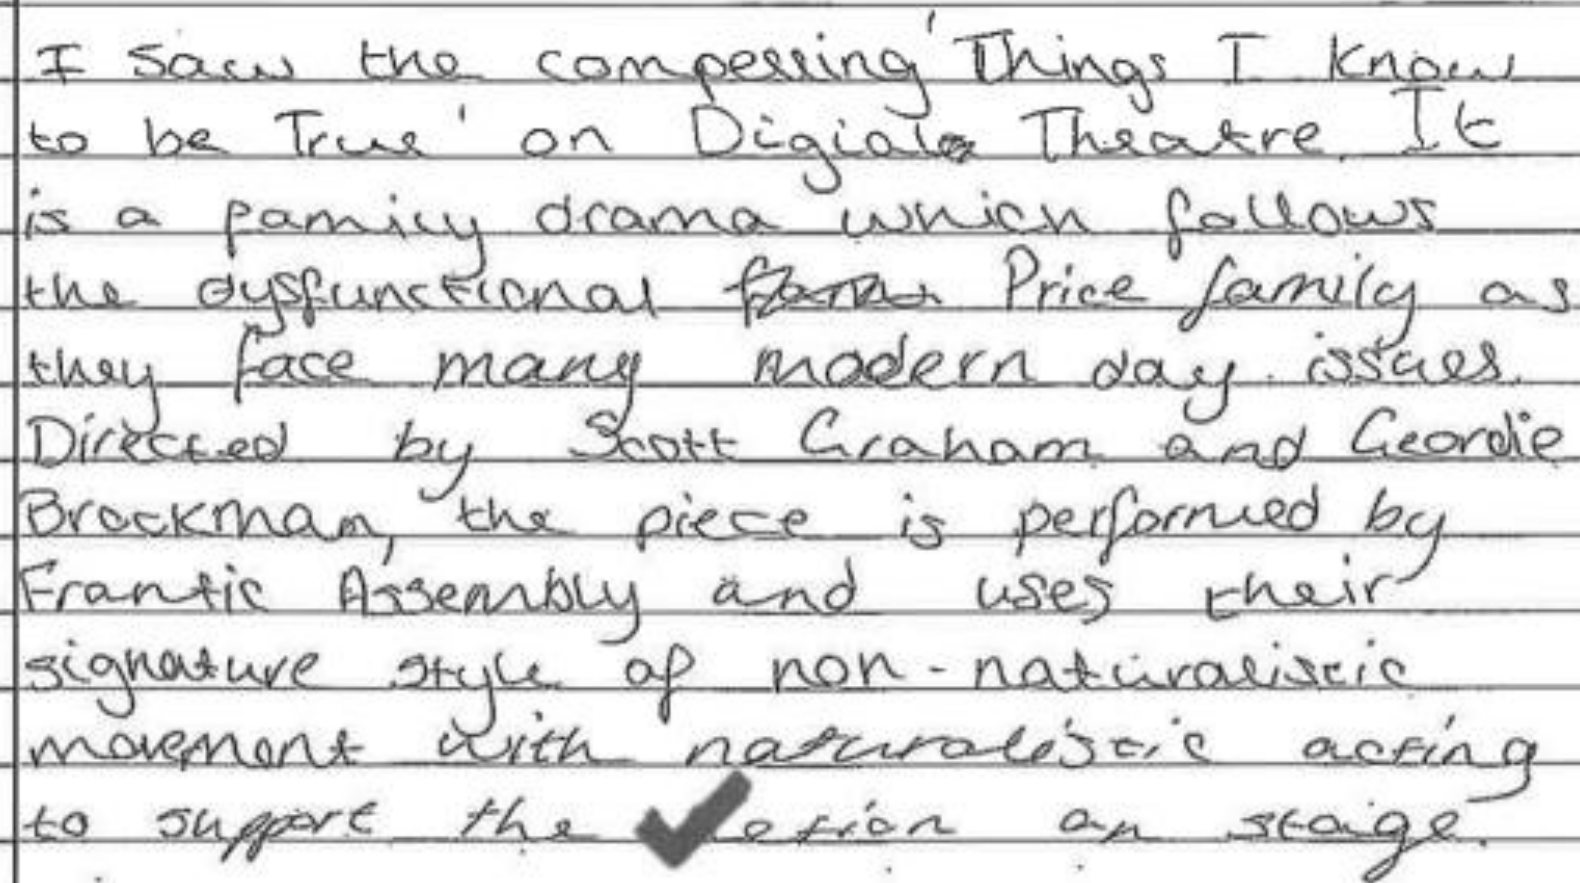 I saw the compelling 'Things I know
to be True' on Digial Theatre. It
is a family drama which follows
the dysfunctional Price family as
they face many modern day issues.
Directed by Scott Graham and Geordie
Brockman, the piece is performed by
Frantic Assembly and uses their
signature style of non-naturalistic
movement with naturalistic acting
to support the on stage.